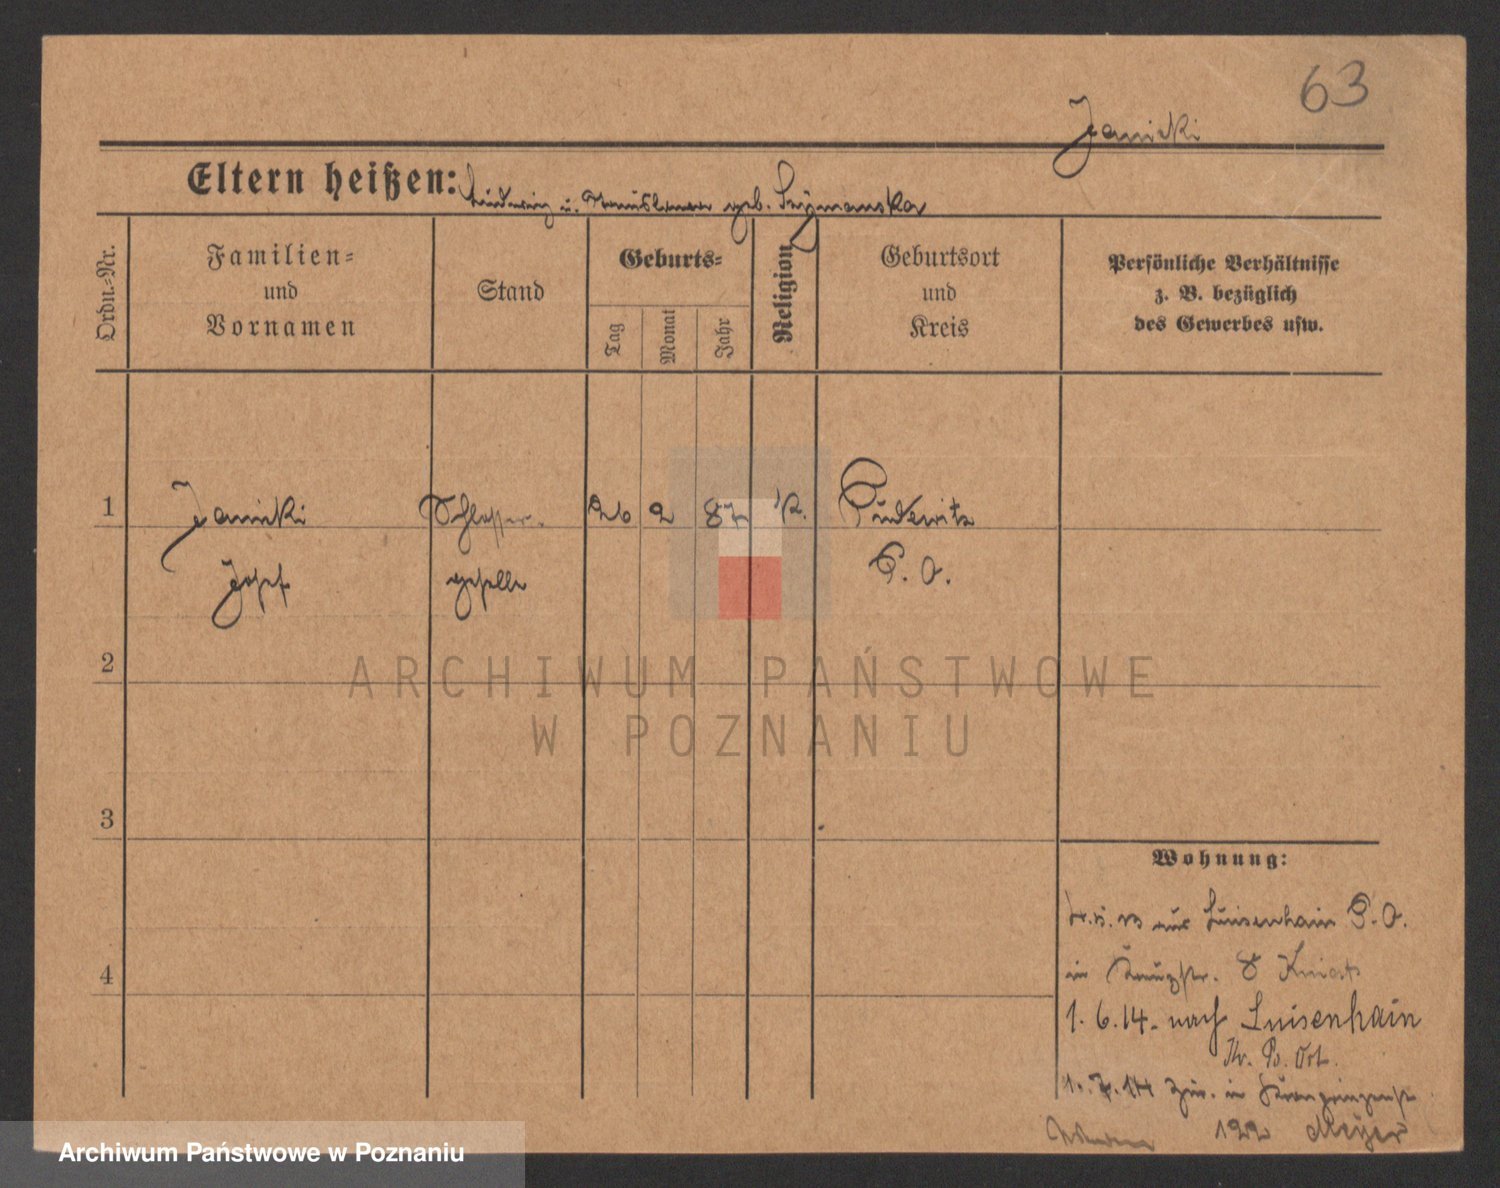 63
Janicki
Eltern heißen: Ludwig u. Stanislawa geb. Szymanska
Ordn.-Nr.
Familien-
und
Vornamen
Stand
Geburts-
Tag
Monat
Jahr
Religion
Geburtsort
und
Kreis
Persönliche Verhältnisse
z. B. bezüglich
des Gewerbes usw.
1 Janicki Schlosser- 26 2 87 k. Pudewitz
Josef geselle P. O.
2
3
4
Wohnung:
aus Luisenhain P. O.
in 8
1. 6. 14. nach Luisenhain
Kr. Po. Ost.
1. 7. 14 zur. in Kronprinzenst
122 Meyer
ARCHIWUM PAŃSTWOWE
W POZNANIU
Archiwum Państwowe w Poznaniu